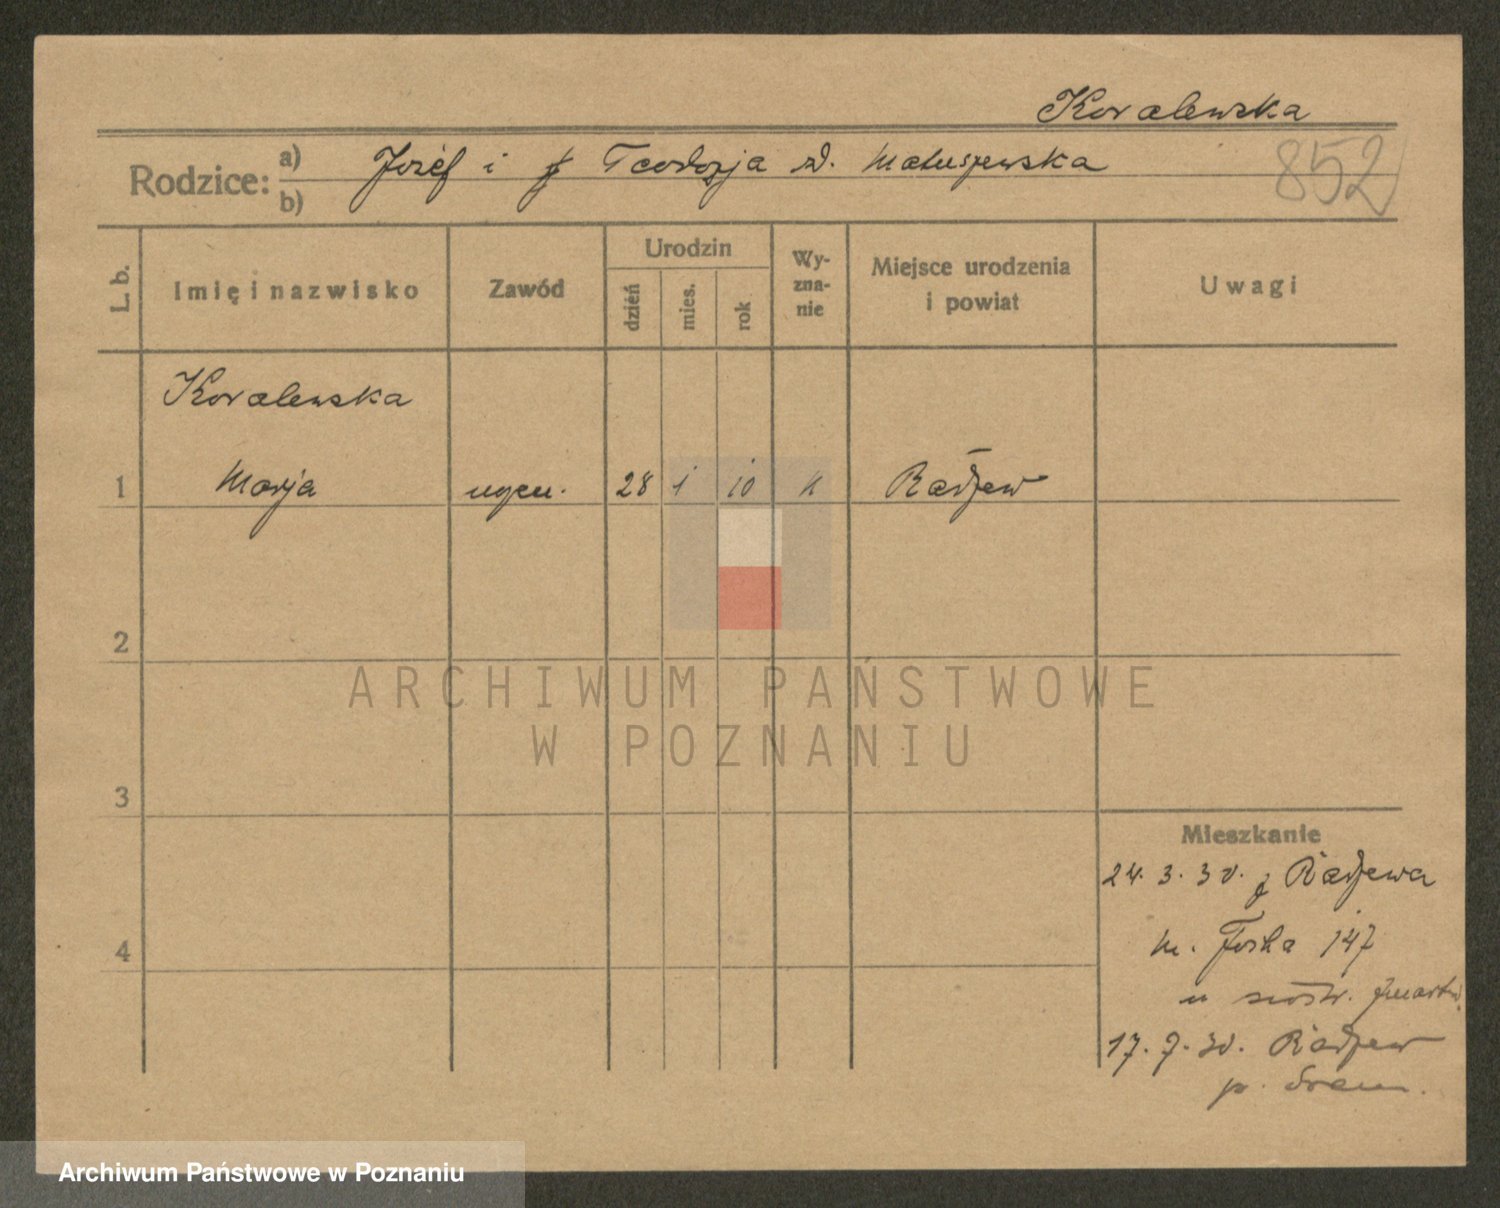 Kowalewska
Rodzice: a) Józef i Teodozja zd. Matuszewska
b)
852
L. b.
Imię i nazwisko
Zawód
Urodzin
dzień
mies.
rok
Wy-
zna-
nie
Miejsce urodzenia
i powiat
Uwagi
Kowalewska
1 Marja uczen. 28 1 10 k Radzew
2
3
4
Mieszkanie
24. 3. 30. z Radzewa
m. Focha 147
u siostr. zmartw.
17. 7. 30. Radzew
p. Śrem.
ARCHIWUM PAŃSTWOWE
W POZNANIU
Archiwum Państwowe w Poznaniu